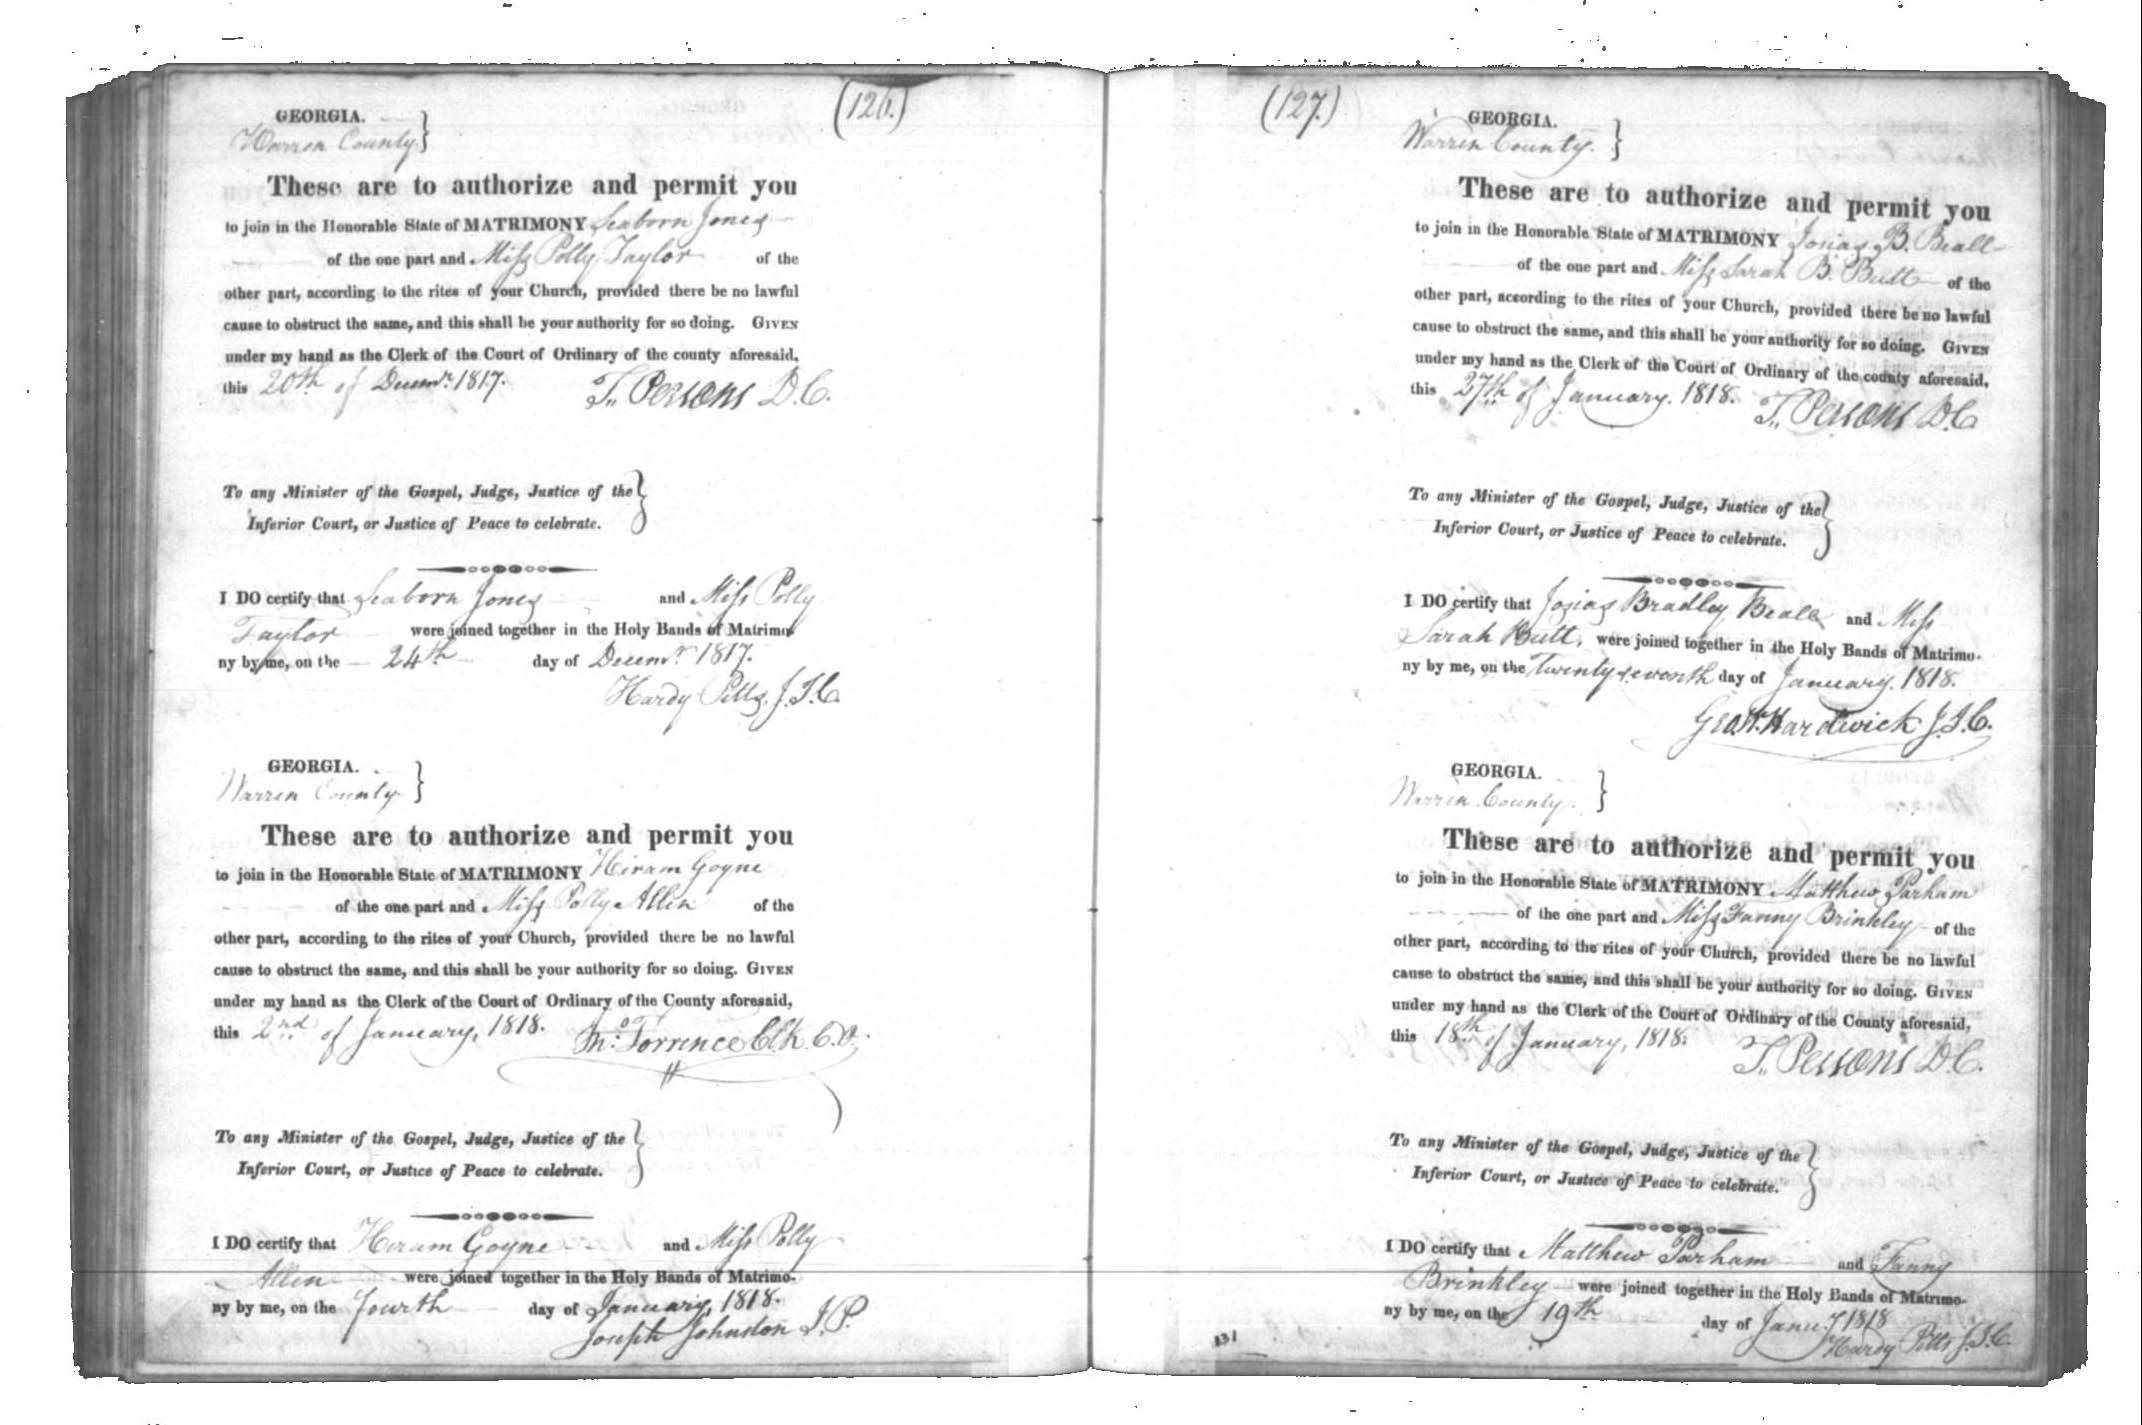 (126.)
GEORGIA.
Warren County }
These are to authorize and permit you
to join in the Honorable State of MATRIMONY Seaborn Jones
of the one part and Miss Polly Taylor of the
other part, according to the rites of your Church, provided there be no lawful
cause to obstruct the same, and this shall be your authority for so doing. GIVEN
under my hand as the Clerk of the Court of Ordinary of the county aforesaid,
this 20th of Decemr. 1817. T. Persons D.C.
To any Minister of the Gospel, Judge, Justice of the }
Inferior Court, or Justice of Peace to celebrate.
I DO certify that Seaborn Jones and Miss Polly
Taylor were joined together in the Holy Bands of Matrimo-
ny by me, on the 24th day of Decemr 1817.
Hardy Pitts, J.I.C.
GEORGIA.
Warren County }
These are to authorize and permit you
to join in the Honorable State of MATRIMONY Hiram Goyne
of the one part and Miss Polly Allen of the
other part, according to the rites of your Church, provided there be no lawful
cause to obstruct the same, and this shall be your authority for so doing. GIVEN
under my hand as the Clerk of the Court of Ordinary of the County aforesaid,
this 2nd of January, 1818. M. Torrence Clk. C.O.
To any Minister of the Gospel, Judge, Justice of the }
Inferior Court, or Justice of Peace to celebrate.
I DO certify that Hiram Goyne and Miss Polly
Allen were joined together in the Holy Bands of Matrimo-
ny by me, on the Fourth day of January, 1818.
Joseph Johnston J.P.
(127.)
GEORGIA.
Warren County. }
These are to authorize and permit you
to join in the Honorable State of MATRIMONY Josias B. Beall
of the one part and Miss Sarah B. Butt of the
other part, according to the rites of your Church, provided there be no lawful
cause to obstruct the same, and this shall be your authority for so doing. GIVEN
under my hand as the Clerk of the Court of Ordinary of the county aforesaid,
this 27th of January. 1818. T. Persons D.C
To any Minister of the Gospel, Judge, Justice of the }
Inferior Court, or Justice of Peace to celebrate.
I DO certify that Josias Bradley Beall and Miss
Sarah Butt, were joined together in the Holy Bands of Matrimo-
ny by me, on the Twenty seventh day of January. 1818.
Geo. W. Hardwick J.I.C.
GEORGIA.
Warren County. }
These are to authorize and permit you
to join in the Honorable State of MATRIMONY Matthew Parham
of the one part and Miss Fanny Brinkley of the
other part, according to the rites of your Church, provided there be no lawful
cause to obstruct the same, and this shall be your authority for so doing. GIVEN
under my hand as the Clerk of the Court of Ordinary of the County aforesaid,
this 18th of January, 1818. T. Persons D.C.
To any Minister of the Gospel, Judge, Justice of the }
Inferior Court, or Justice of Peace to celebrate.
I DO certify that Matthew Parham and Fanny
Brinkley were joined together in the Holy Bands of Matrimo-
ny by me, on the 19th day of Jany 1818
Hardy Pitts J.I.C.
131